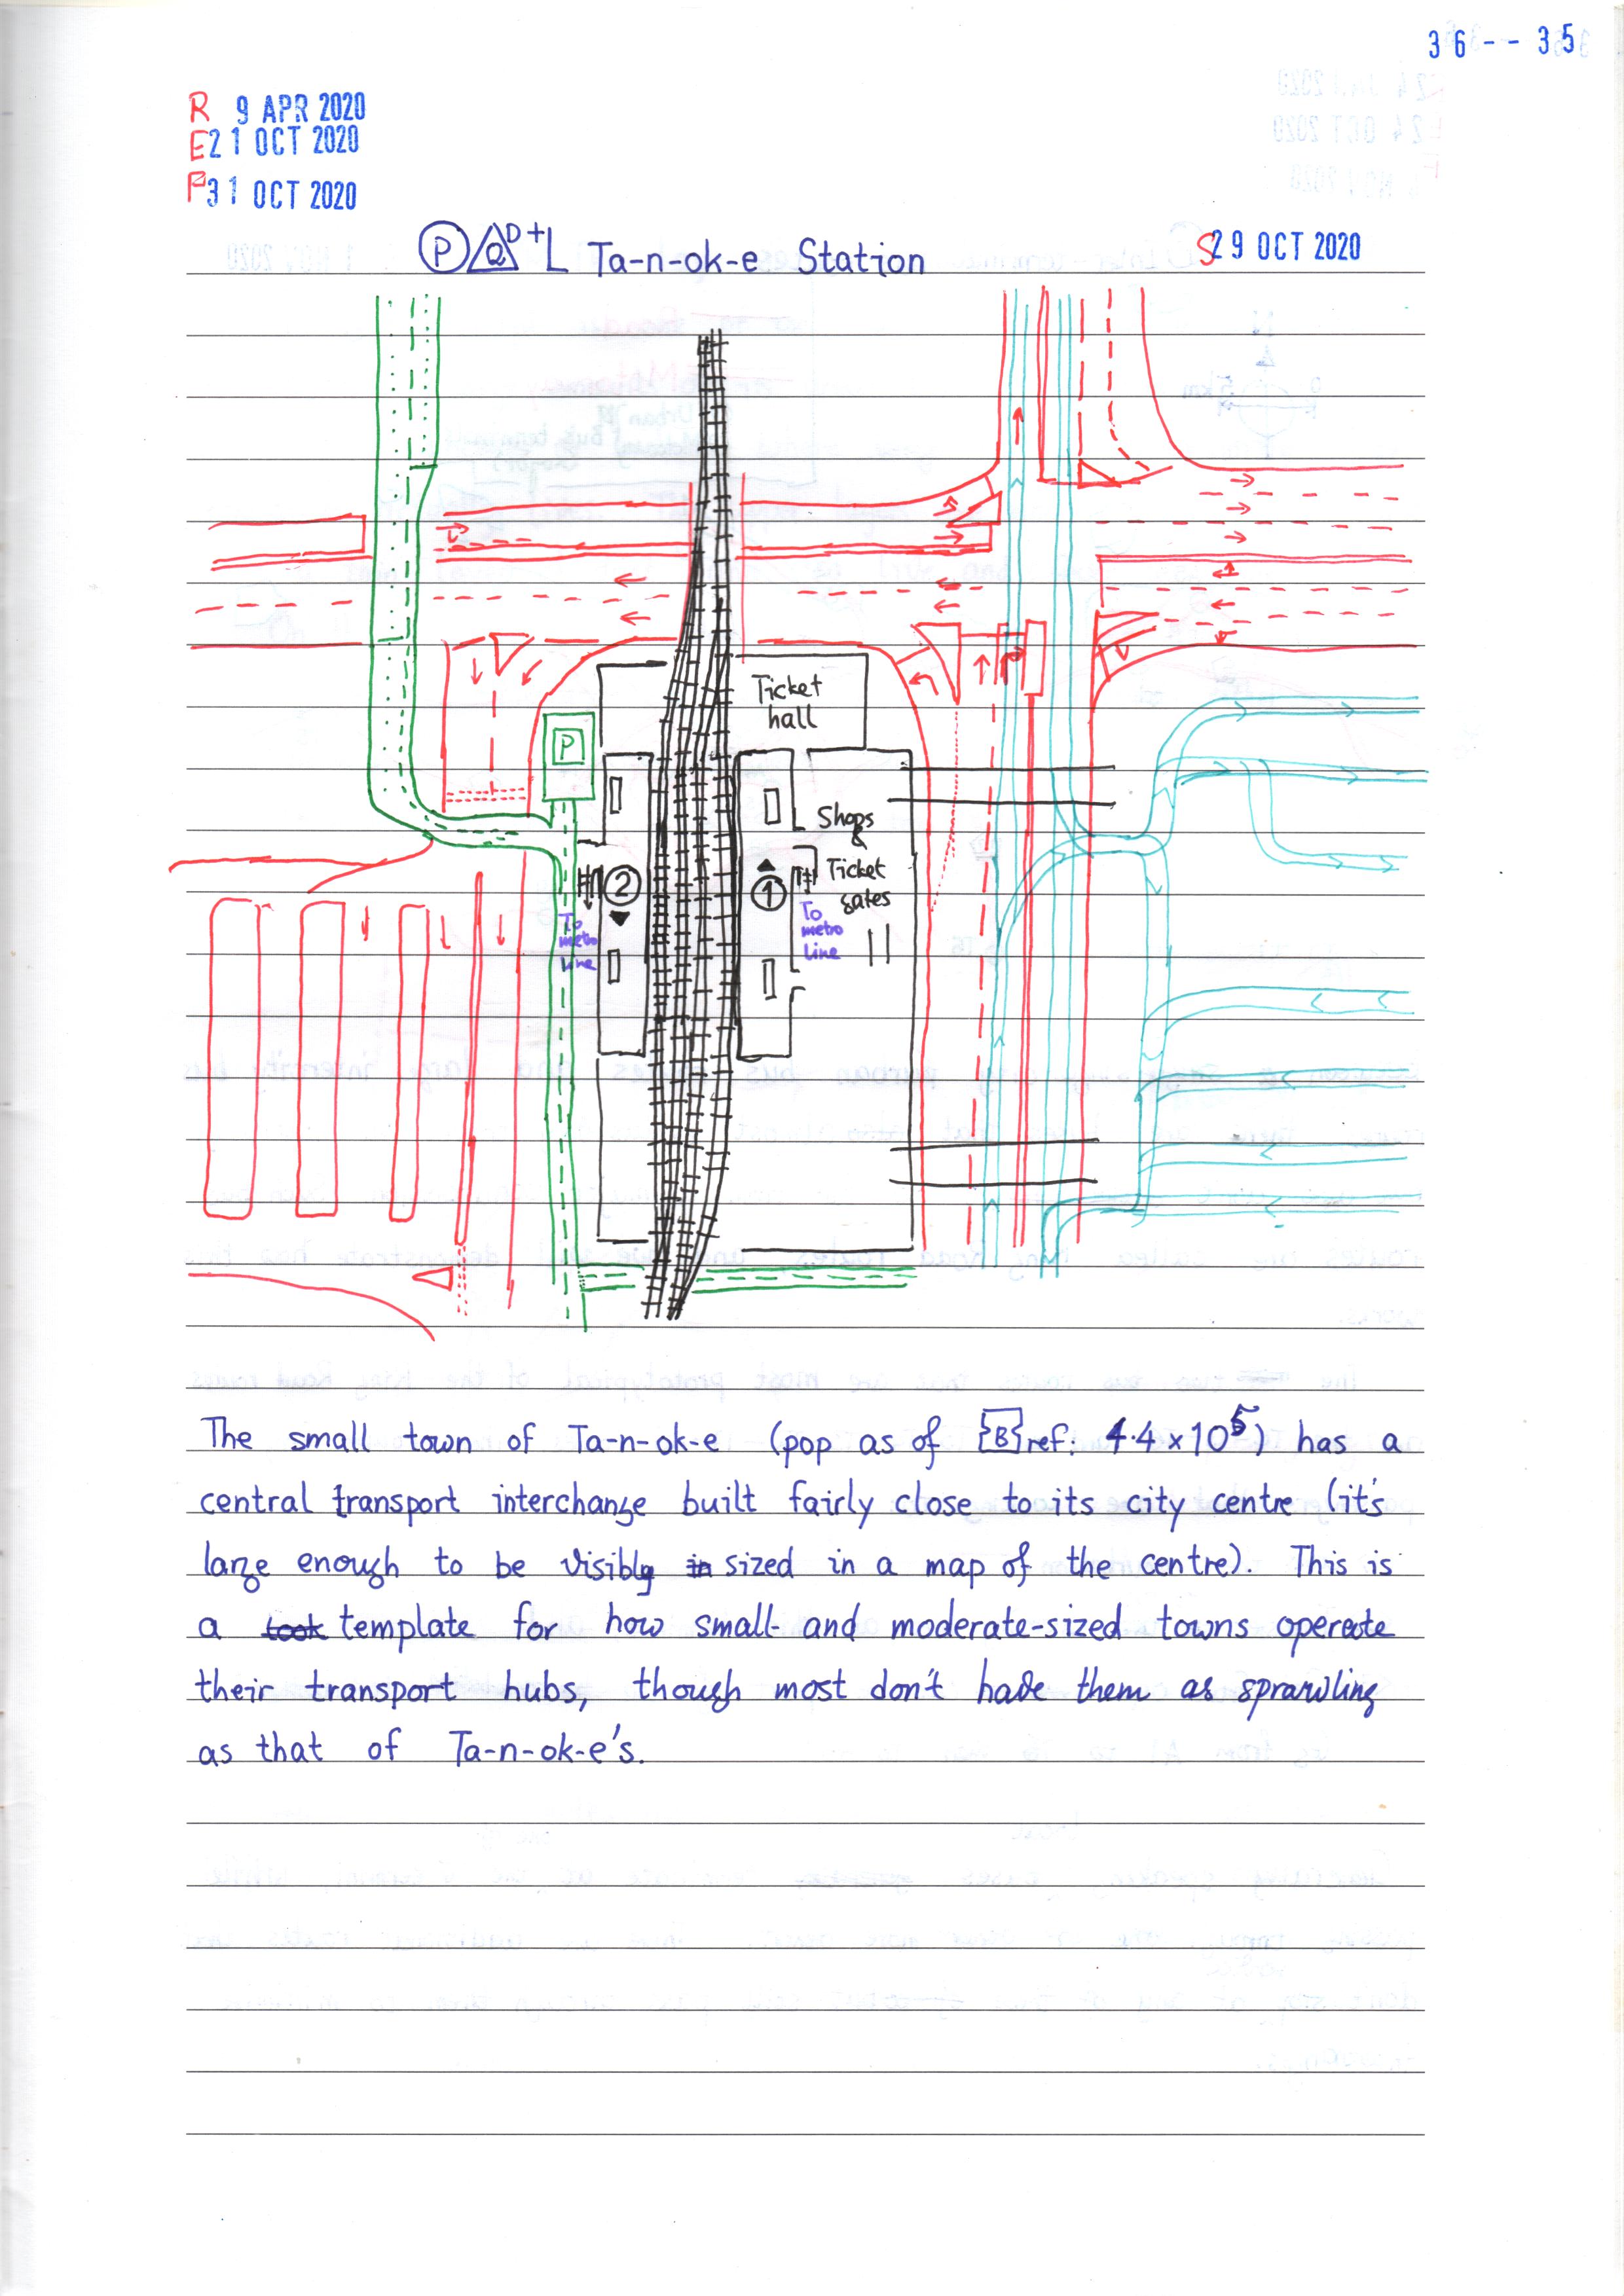 36--35
R 9 APR 2020
E 21 OCT 2020
P 31 OCT 2020
P Q D+L Ta-n-ok-e Station
S 29 OCT 2020
Ticket
hall
P
Shops
&
Ticket
gates
2
1
To
metro
line
To
metro
line
The small town of Ta-n-ok-e (pop as of B ref: 4.4×10⁵) has a
central transport interchange built fairly close to its city centre (it's
large enough to be visibly in sized in a map of the centre). This is
a took template for how small- and moderate-sized towns operate
their transport hubs, though most don't have them as sprawling
as that of Ta-n-ok-e's.